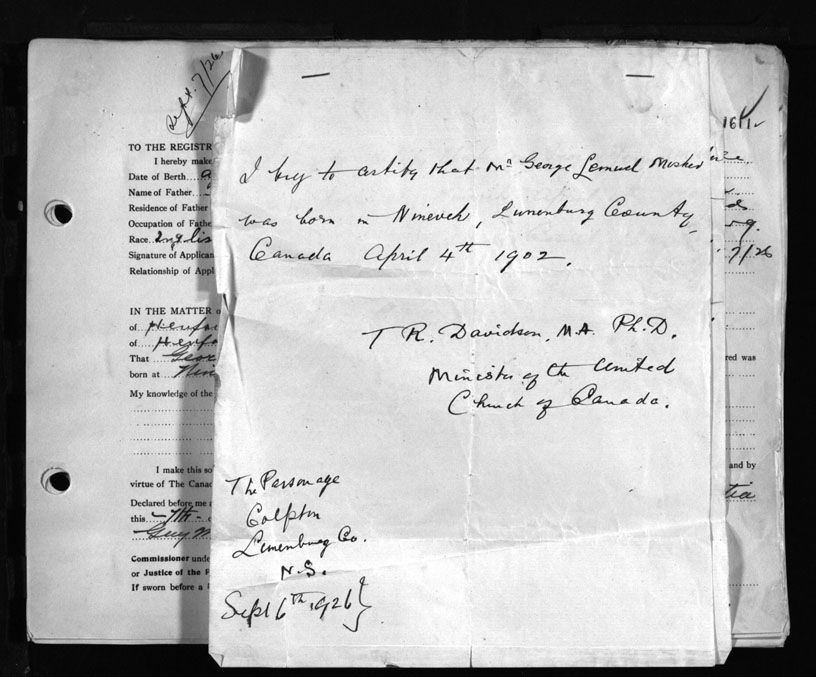 Sept. 7/26
TO THE REGISTR
I hereby make
Date of Birth
Name of Father
Residence of Father
Occupation of Fathe
Race Inglis
Signature of Applican
Relationship of Appl
IN THE MATTER o
of
of
That Geor
born at Nin
My knowledge of the
I make this so
virtue of The Canad
Declared before me a
this 7th
Guy
Commissioner unde
or Justice of the P
If sworn before a
I beg to certify that Mr George Lemuel Mosher
was born in Ninevch, Lunenburg County,
Canada April 4th 1902.
T R. Davidson, M.A. Ph.D.
Minister of the United
Church of Canada.
The Parsonage
Colpton
Lunenburg Co.
N.S.
Sept 6th 1926}
1611
7/26
red was
and by
tia